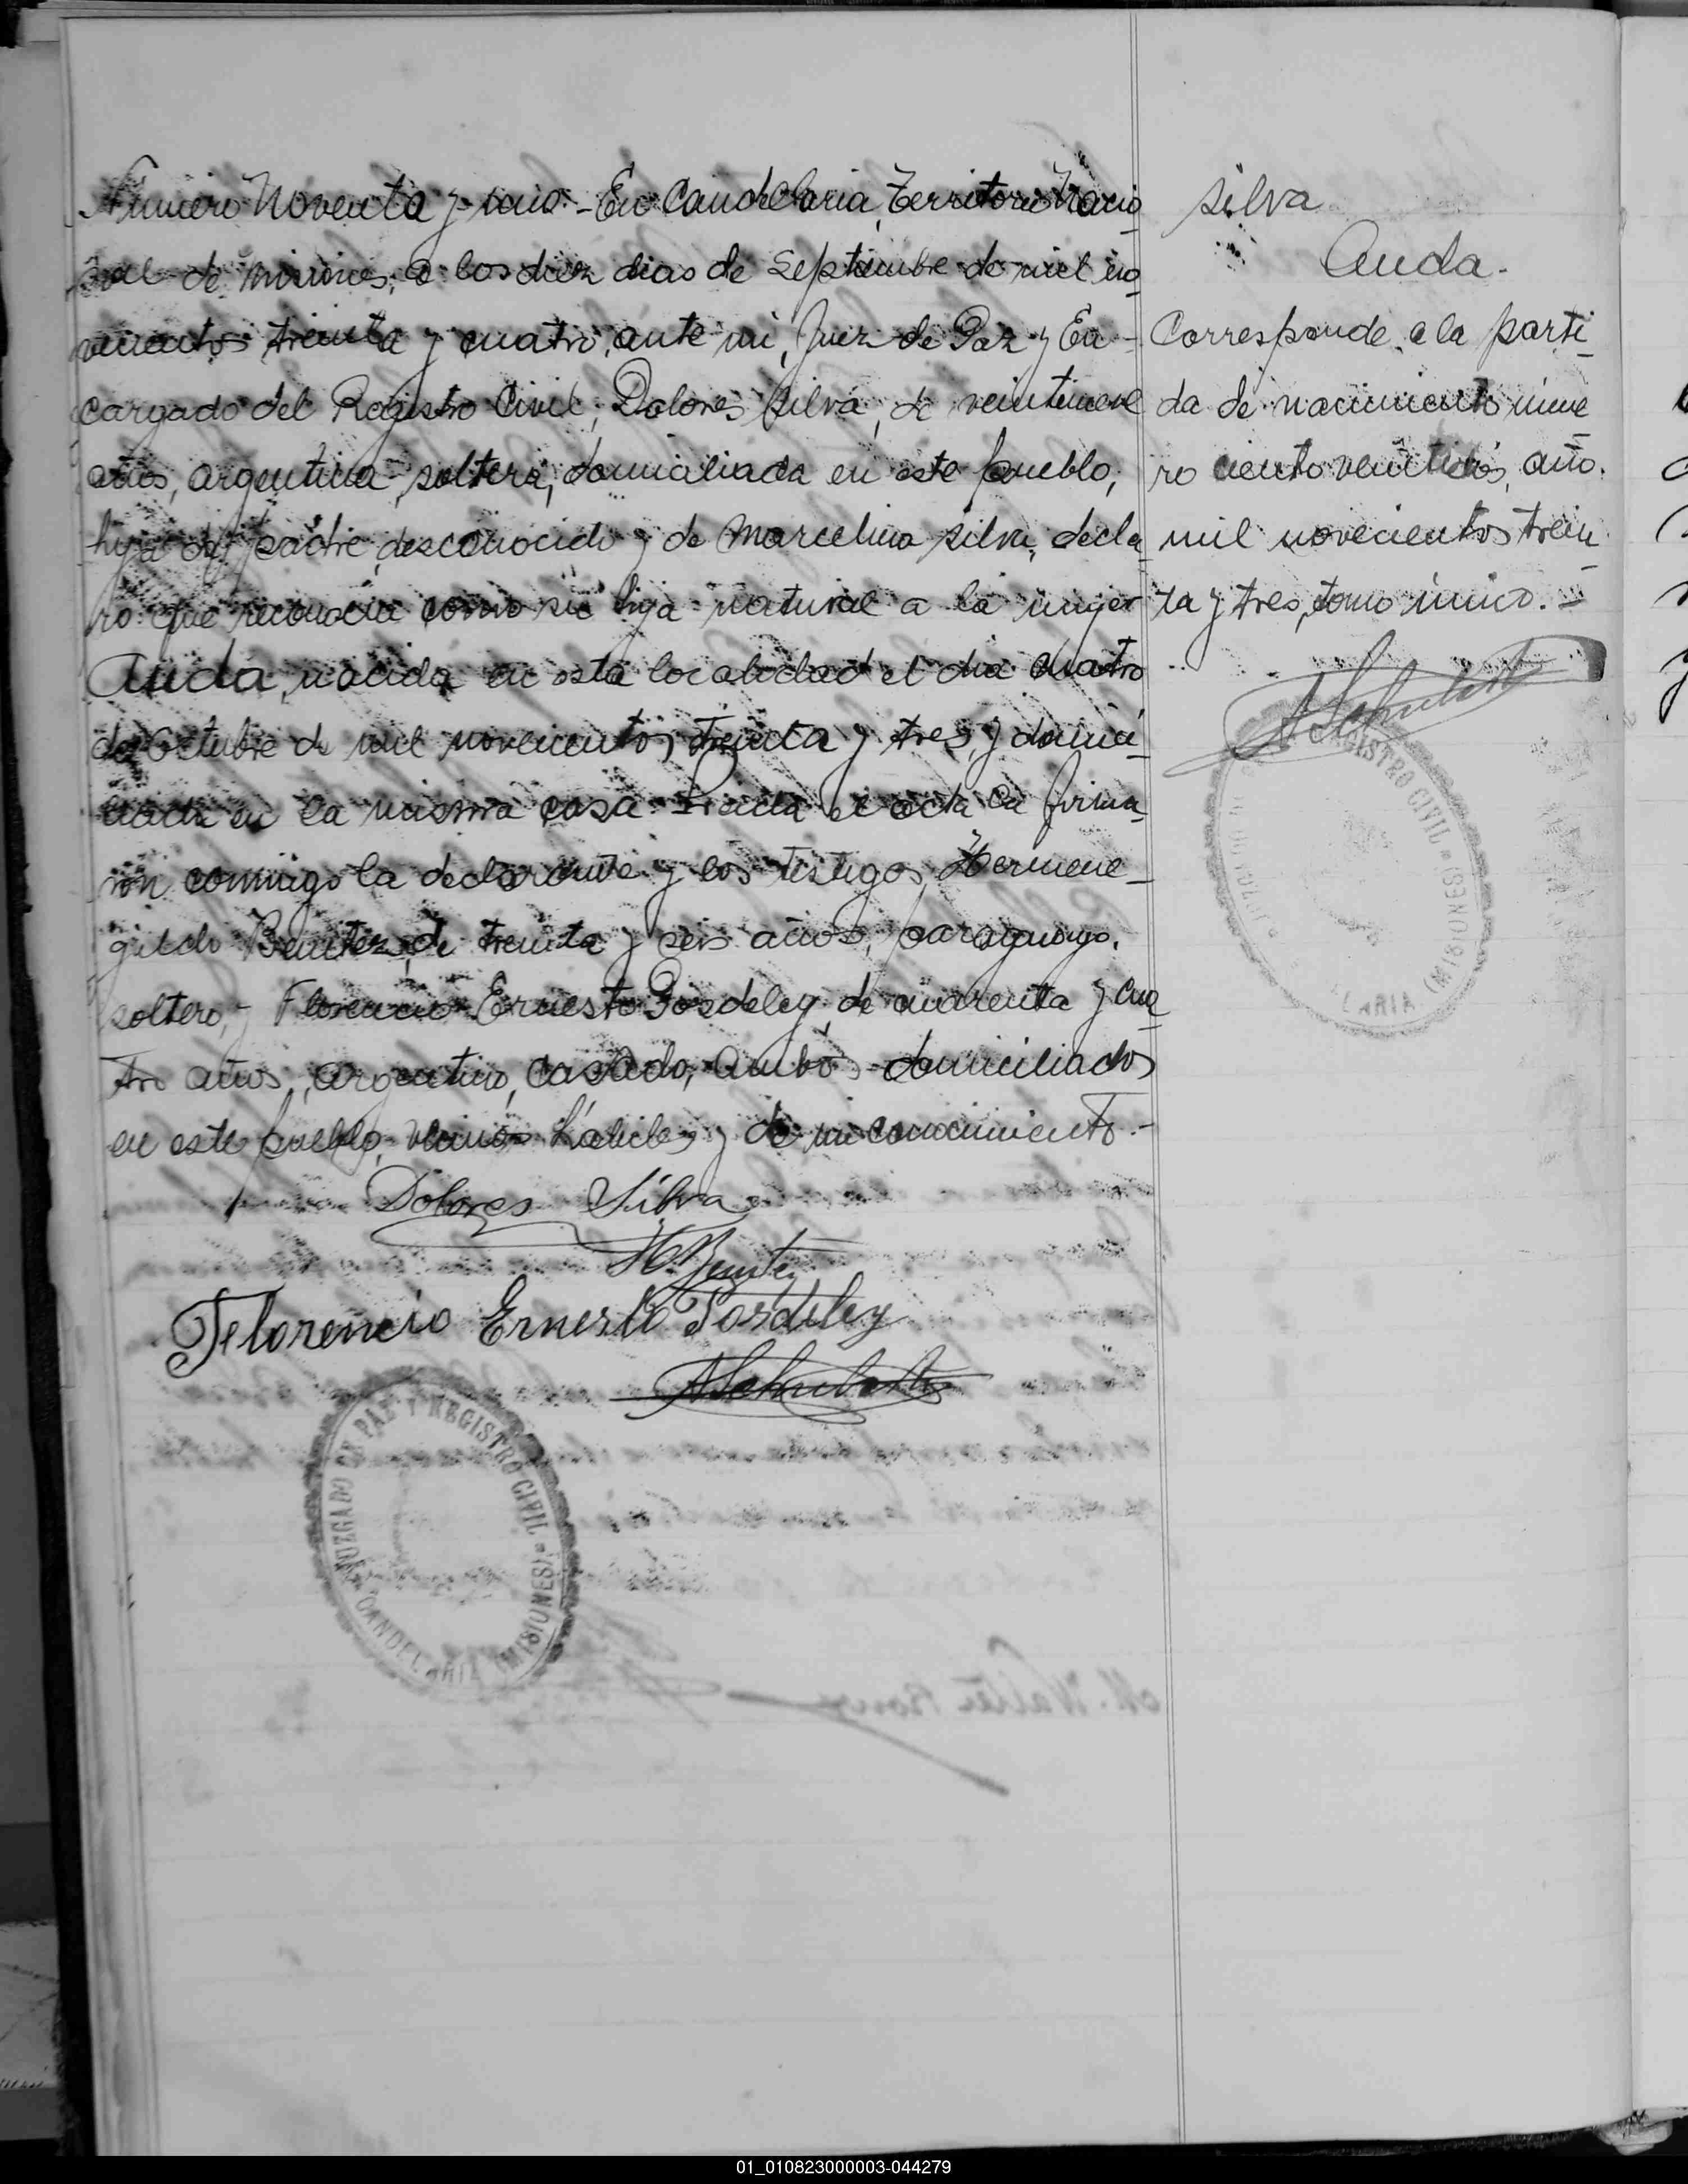 Número Noventa y uno.- En Candelaria, Territorio Nacio
nal de Misiones, a los diez dias de Septiembre de mil no
vecientos treinta y cuatro, ante mi, Juez de Paz y En-
cargado del Registro Civil, Dolores Silva, de veintinueve
años, argentina, soltera, domiciliada en este pueblo,
hija de padre desconocido y de Marcelina Silva, decla
ró que reconocia como su hija natural a la mujer
Auda, nacida en esta localidad el dia cuatro
de Octubre de mil novecientos treinta y tres, y domici-
liada en la misma casa. Leida el acta la firma-
ron conmigo la declarante y los testigos, Hermene-
gildo Benitez, de treinta y seis años, paraguayo,
soltero, y Florencio Ernesto Posdeley, de cuarenta y cua
tro años, argentino, casado, ambos domiciliados
en este pueblo, vecinos hábiles y de mi conocimiento.-
Dolores Silva
H Benitez
Florencio Ernesto Posdeley
JUZGADO DE PAZ Y REGISTRO CIVIL
CANDELARIA (MISIONES)
Silva
Auda.
Corresponde a la parti
da de nacimiento núme
ro ciento veintidós, año
mil novecientos trein
ta y tres, tomo único.-
REGISTRO CIVIL
(MISIONES)
M. Walter
01_010823000003-044279